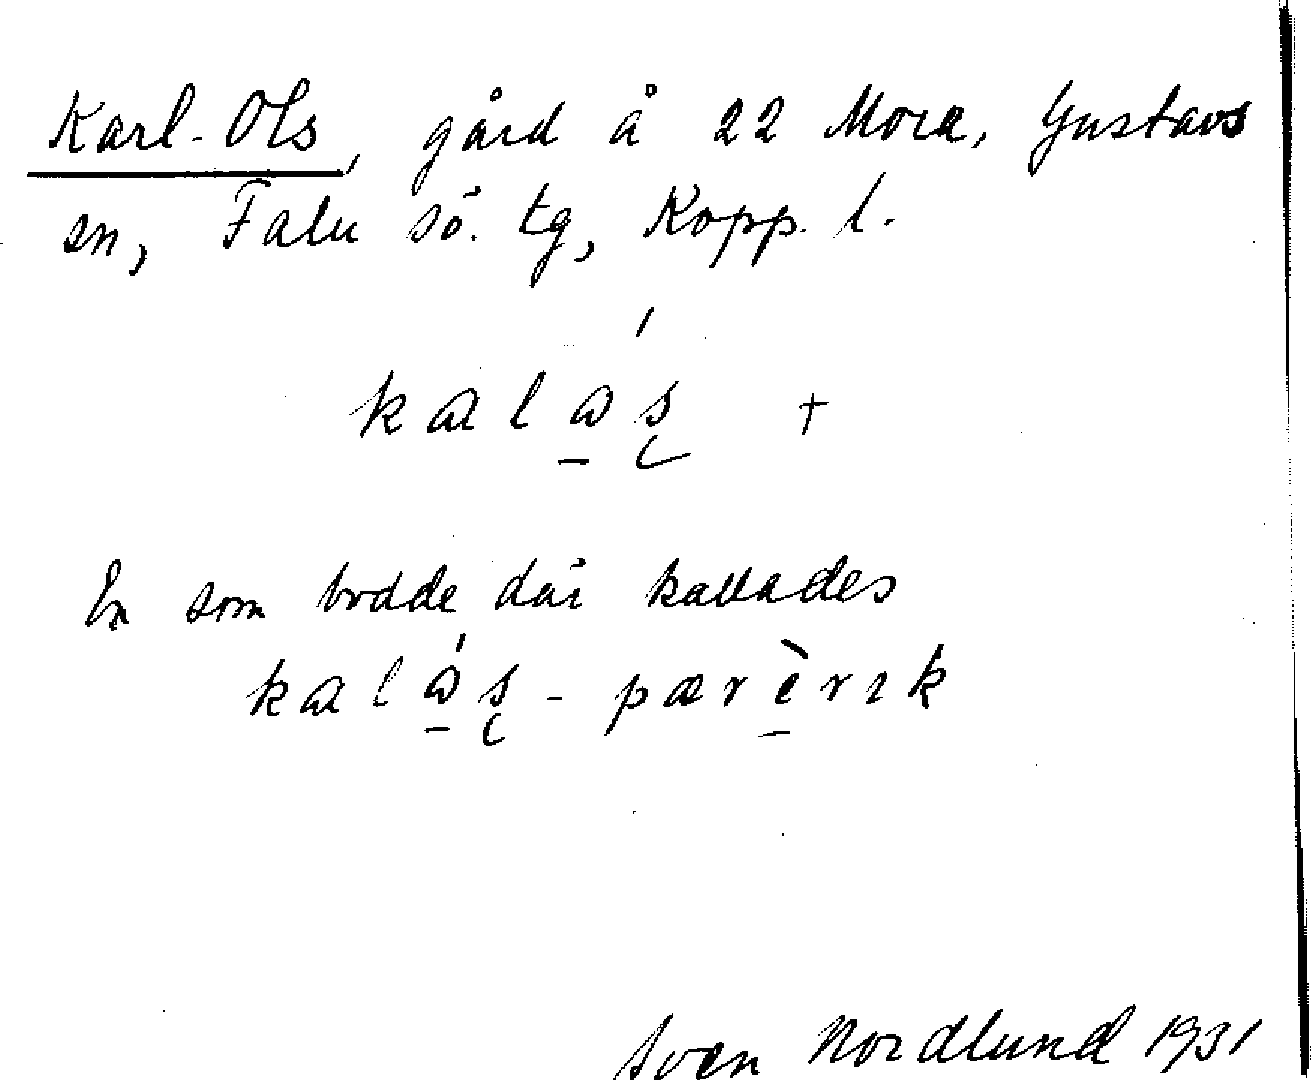 Karl-Ols, gård å 22 Mora, Gustavs
sn, Falu sö. tg, Kopp. l.
kalɷ̲́s̨ +
En som bodde där kallades
kalɷ̲́s̨ - pærè̲rık
Sven Nordlund 1931